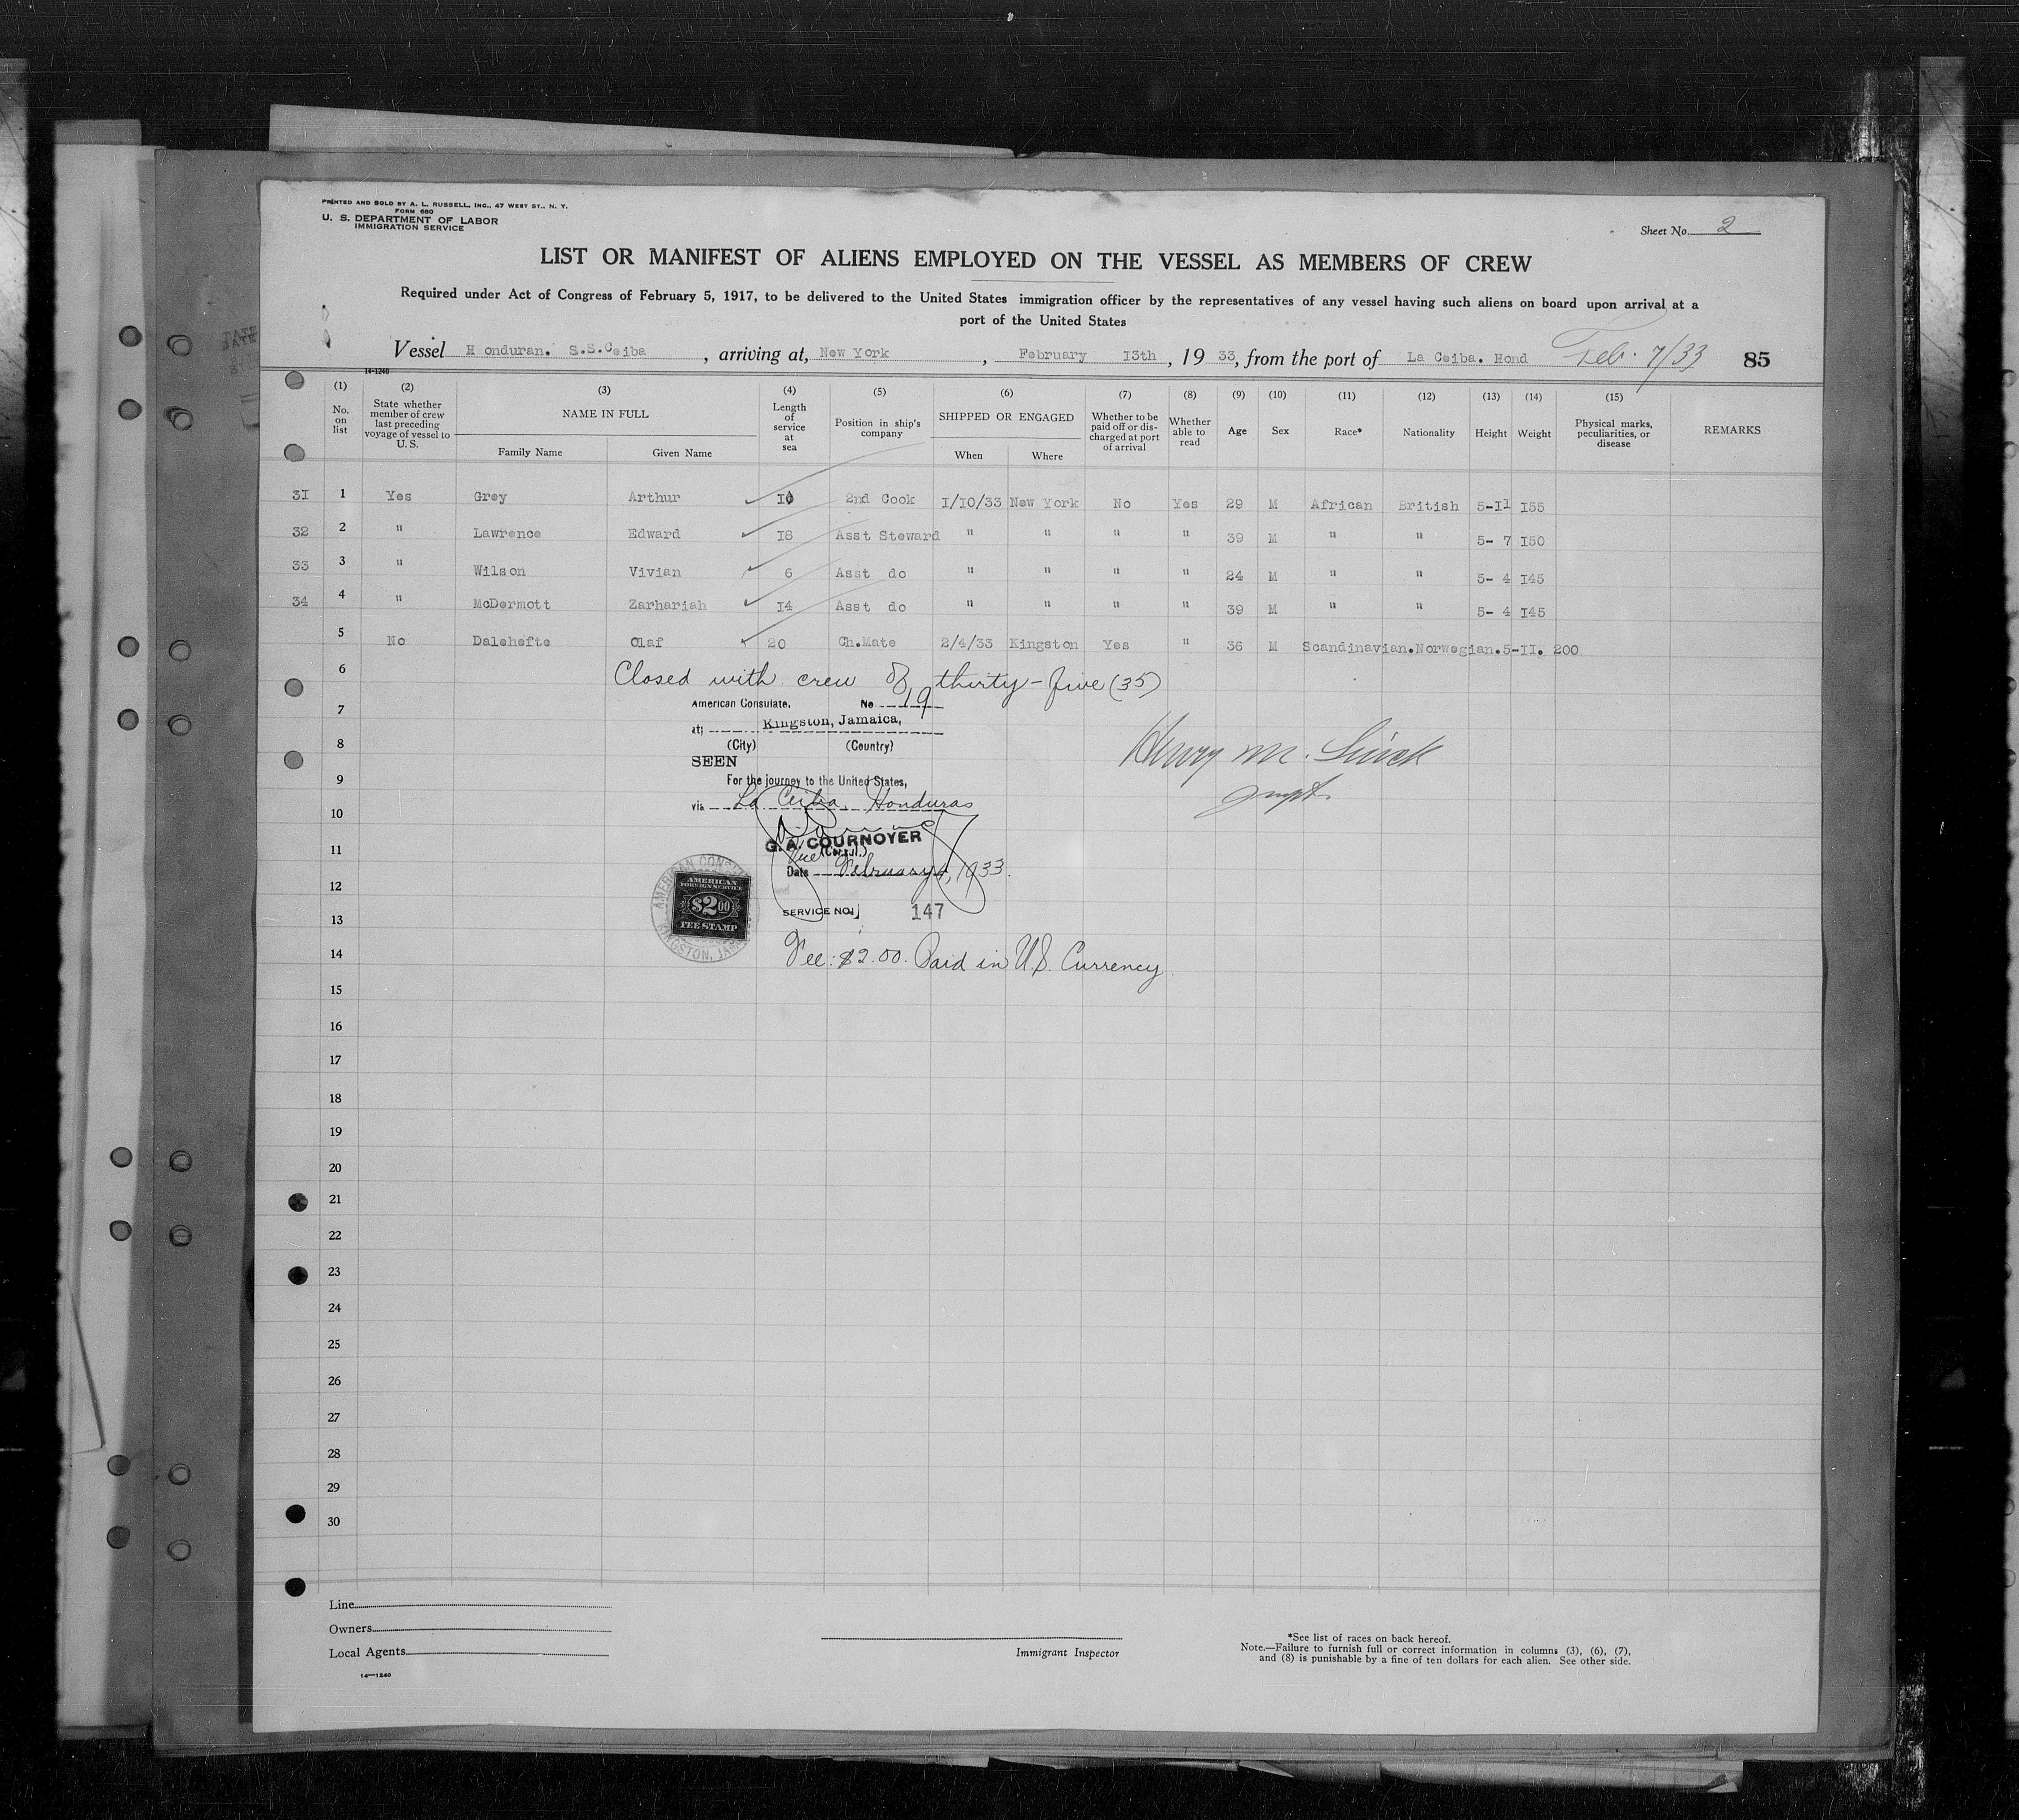 PRINTED AND SOLD BY A. L. RUSSELL, INC., 47 WEST ST., N. Y.
FORM 680
U. S. DEPARTMENT OF LABOR
IMMIGRATION SERVICE
Sheet No. 2
LIST OR MANIFEST OF ALIENS EMPLOYED ON THE VESSEL AS MEMBERS OF CREW
Required under Act of Congress of February 5, 1917, to be delivered to the United States immigration officer by the representatives of any vessel having such aliens on board upon arrival at a
port of the United States
Vessel H onduran. S.S.Ceiba, arriving at, New York, February 13th, 19 33, from the port of La Ceiba. Hond Feb. 7/33 85
14-1240
(1) (2) (3) (4) (5) (6) (7) (8) (9) (10) (11) (12) (13) (14) (15)
No. on list State whether member of crew last preceding voyage of vessel to U. S. NAME IN FULL Length of service at sea Position in ship's company SHIPPED OR ENGAGED Whether to be paid off or discharged at port of arrival Whether able to read Age Sex Race* Nationality Height Weight Physical marks, peculiarities, or disease REMARKS
Family Name Given Name When Where
31 1 Yes Grey Arthur 10 2nd Cook 1/10/33 New York No Yes 29 M African British 5-11 155
32 2 " Lawrence Edward 18 Asst Steward " " " " 39 M " " 5- 7 150
33 3 " Wilson Vivian 6 Asst do " " " " 24 M " " 5- 4 145
34 4 " McDermott Zarhariah 14 Asst do " " " " 39 M " " 5- 4 145
5 No Dalehefte Olaf 20 Ch.Mate 2/4/33 Kingston Yes " 36 M Scandinavian.Norwegian.5-11. 200
6 Closed with crew of thirty-five (35)
7 American Consulate. No 19
at Kingston, Jamaica,
8 (City) (Country)
SEEN
9 For the journey to the United States,
via La Ceiba, Honduras
10
G. A. COURNOYER
11 Vice Consul
Date February 4, 1933.
12
SERVICE NO. 147
13
AMERICAN FOREIGN SERVICE
$2.00
FEE STAMP
14 Fee: $2.00. Paid in U.S. Currency.
Henry M.
15
16
17
18
19
20
21
22
23
24
25
26
27
28
29
30
Line
Owners
Local Agents
14—1240
Immigrant Inspector
*See list of races on back hereof.
Note.—Failure to furnish full or correct information in columns (3), (6), (7),
and (8) is punishable by a fine of ten dollars for each alien. See other side.